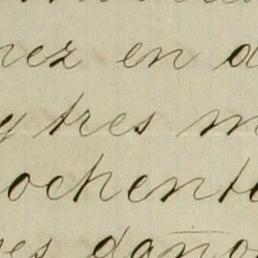 nez en d
y tres m
ochente
es daño